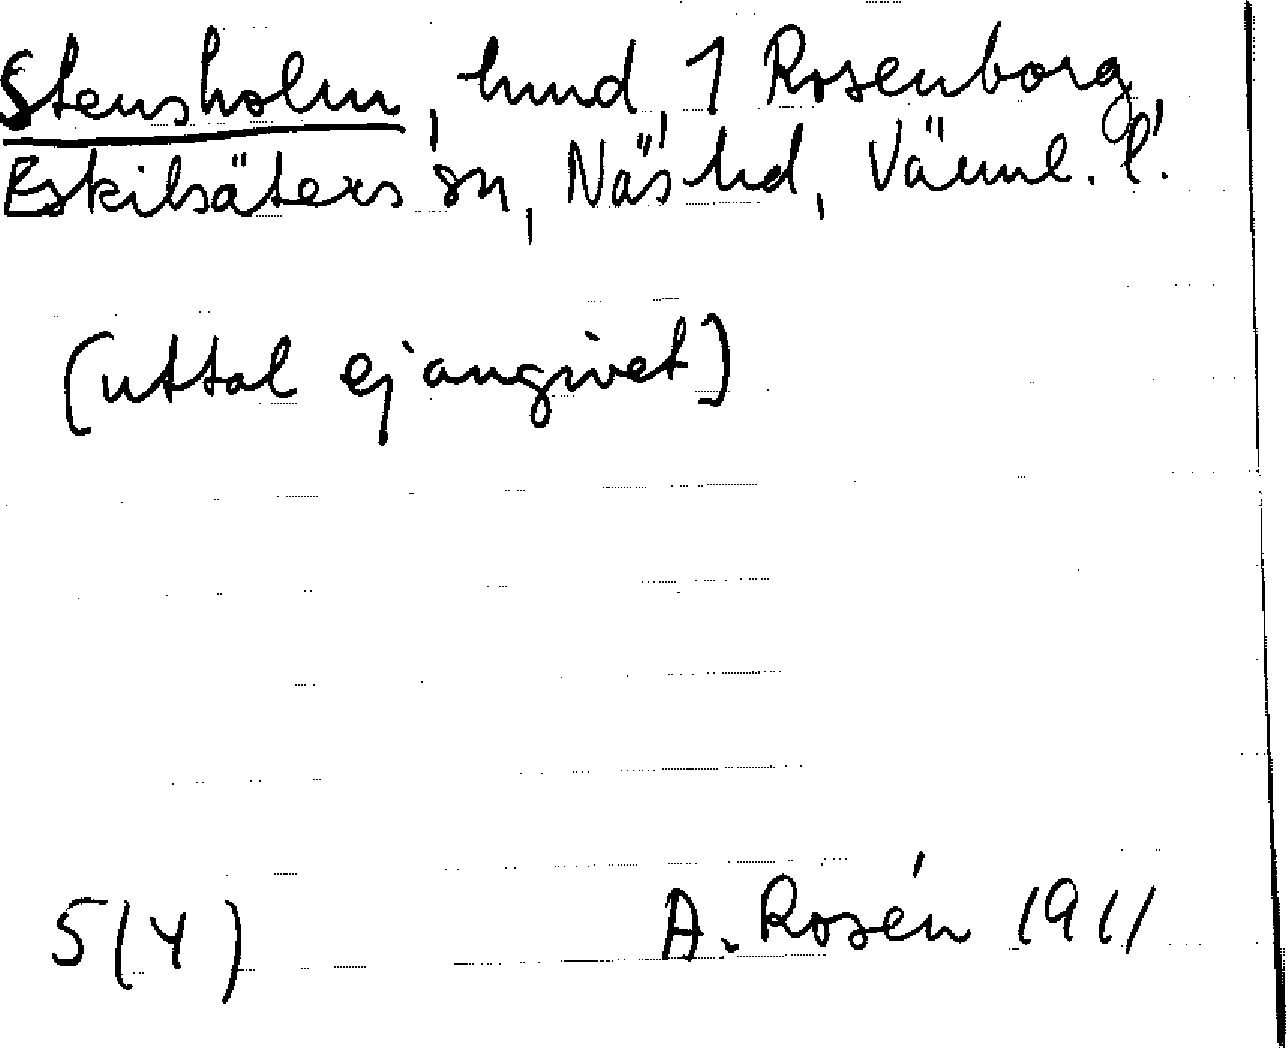 Stensholm, hmd, 1 Rosenborg,
Eskilsäters sn, Näs hd, Värml. l.
(uttal ej angivet)
5(4) A. Rosén 1911